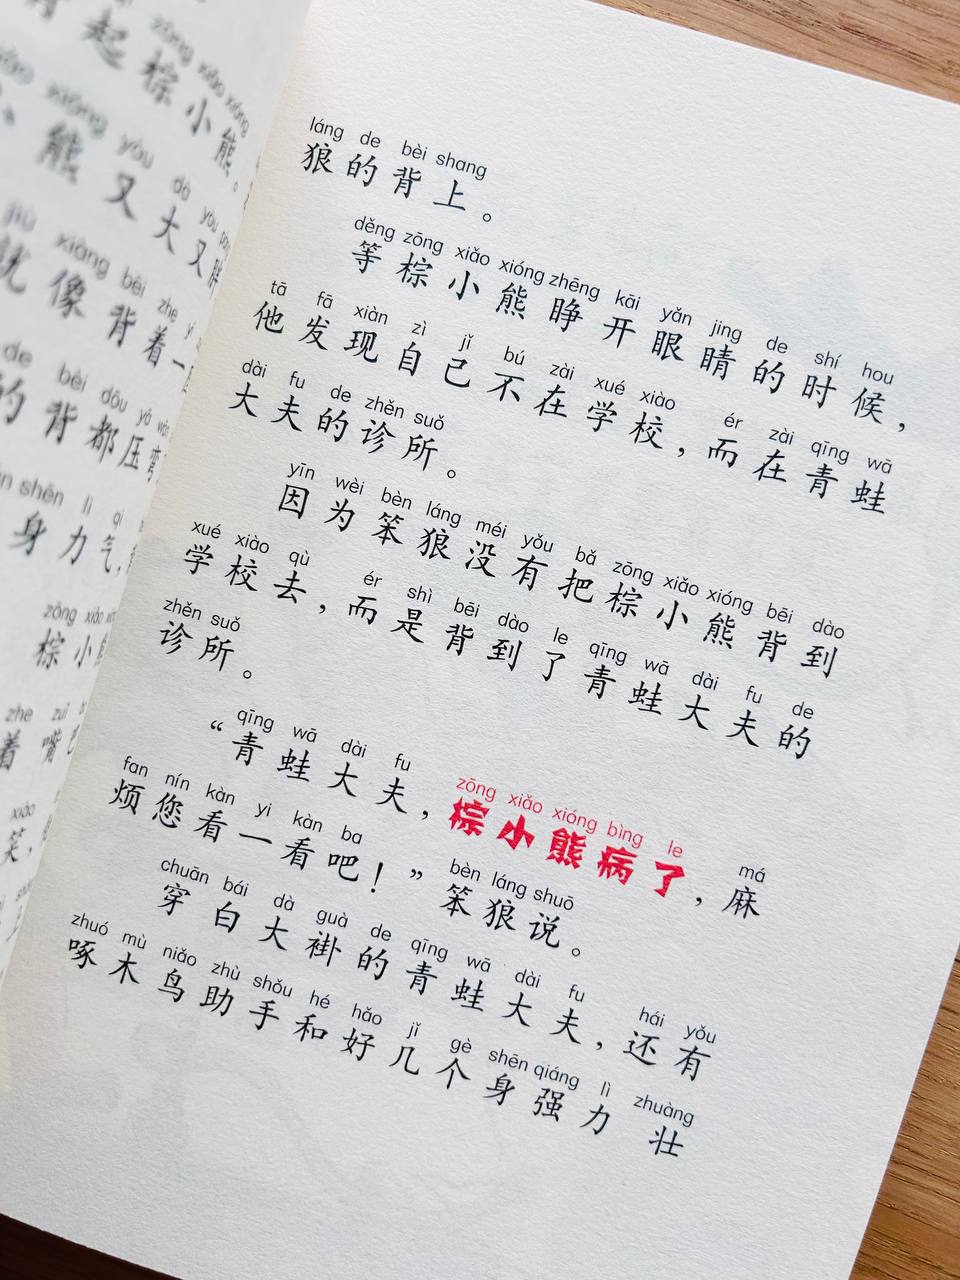 起棕小熊。
熊又大又胖
就像背着一
的背都压弯
身力气，
棕小熊
着嘴巴
笑，
láng de bèi shang
狼的背上。
děng zōng xiǎo xióng zhēng kāi yǎn jing de shí hou
等棕小熊睁开眼睛的时候，
tā fā xiàn zì jǐ bú zài xué xiào ér zài qīng wā
他发现自己不在学校，而在青蛙
dài fu de zhěn suǒ
大夫的诊所。
yīn wèi bèn láng méi yǒu bǎ zōng xiǎo xióng bēi dào
因为笨狼没有把棕小熊背到
xué xiào qù ér shì bēi dào le qīng wā dài fu de
学校去，而是背到了青蛙大夫的
zhěn suǒ
诊所。
qīng wā dài fu zōng xiǎo xióng bìng le má
“青蛙大夫，棕小熊病了，麻
fan nín kàn yi kàn ba bèn láng shuō
烦您看一看吧！”笨狼说。
chuān bái dà guà de qīng wā dài fu hái yǒu
穿白大褂的青蛙大夫，还有
zhuó mù niǎo zhù shǒu hé hǎo jǐ gè shēn qiáng lì zhuàng
啄木鸟助手和好几个身强力壮